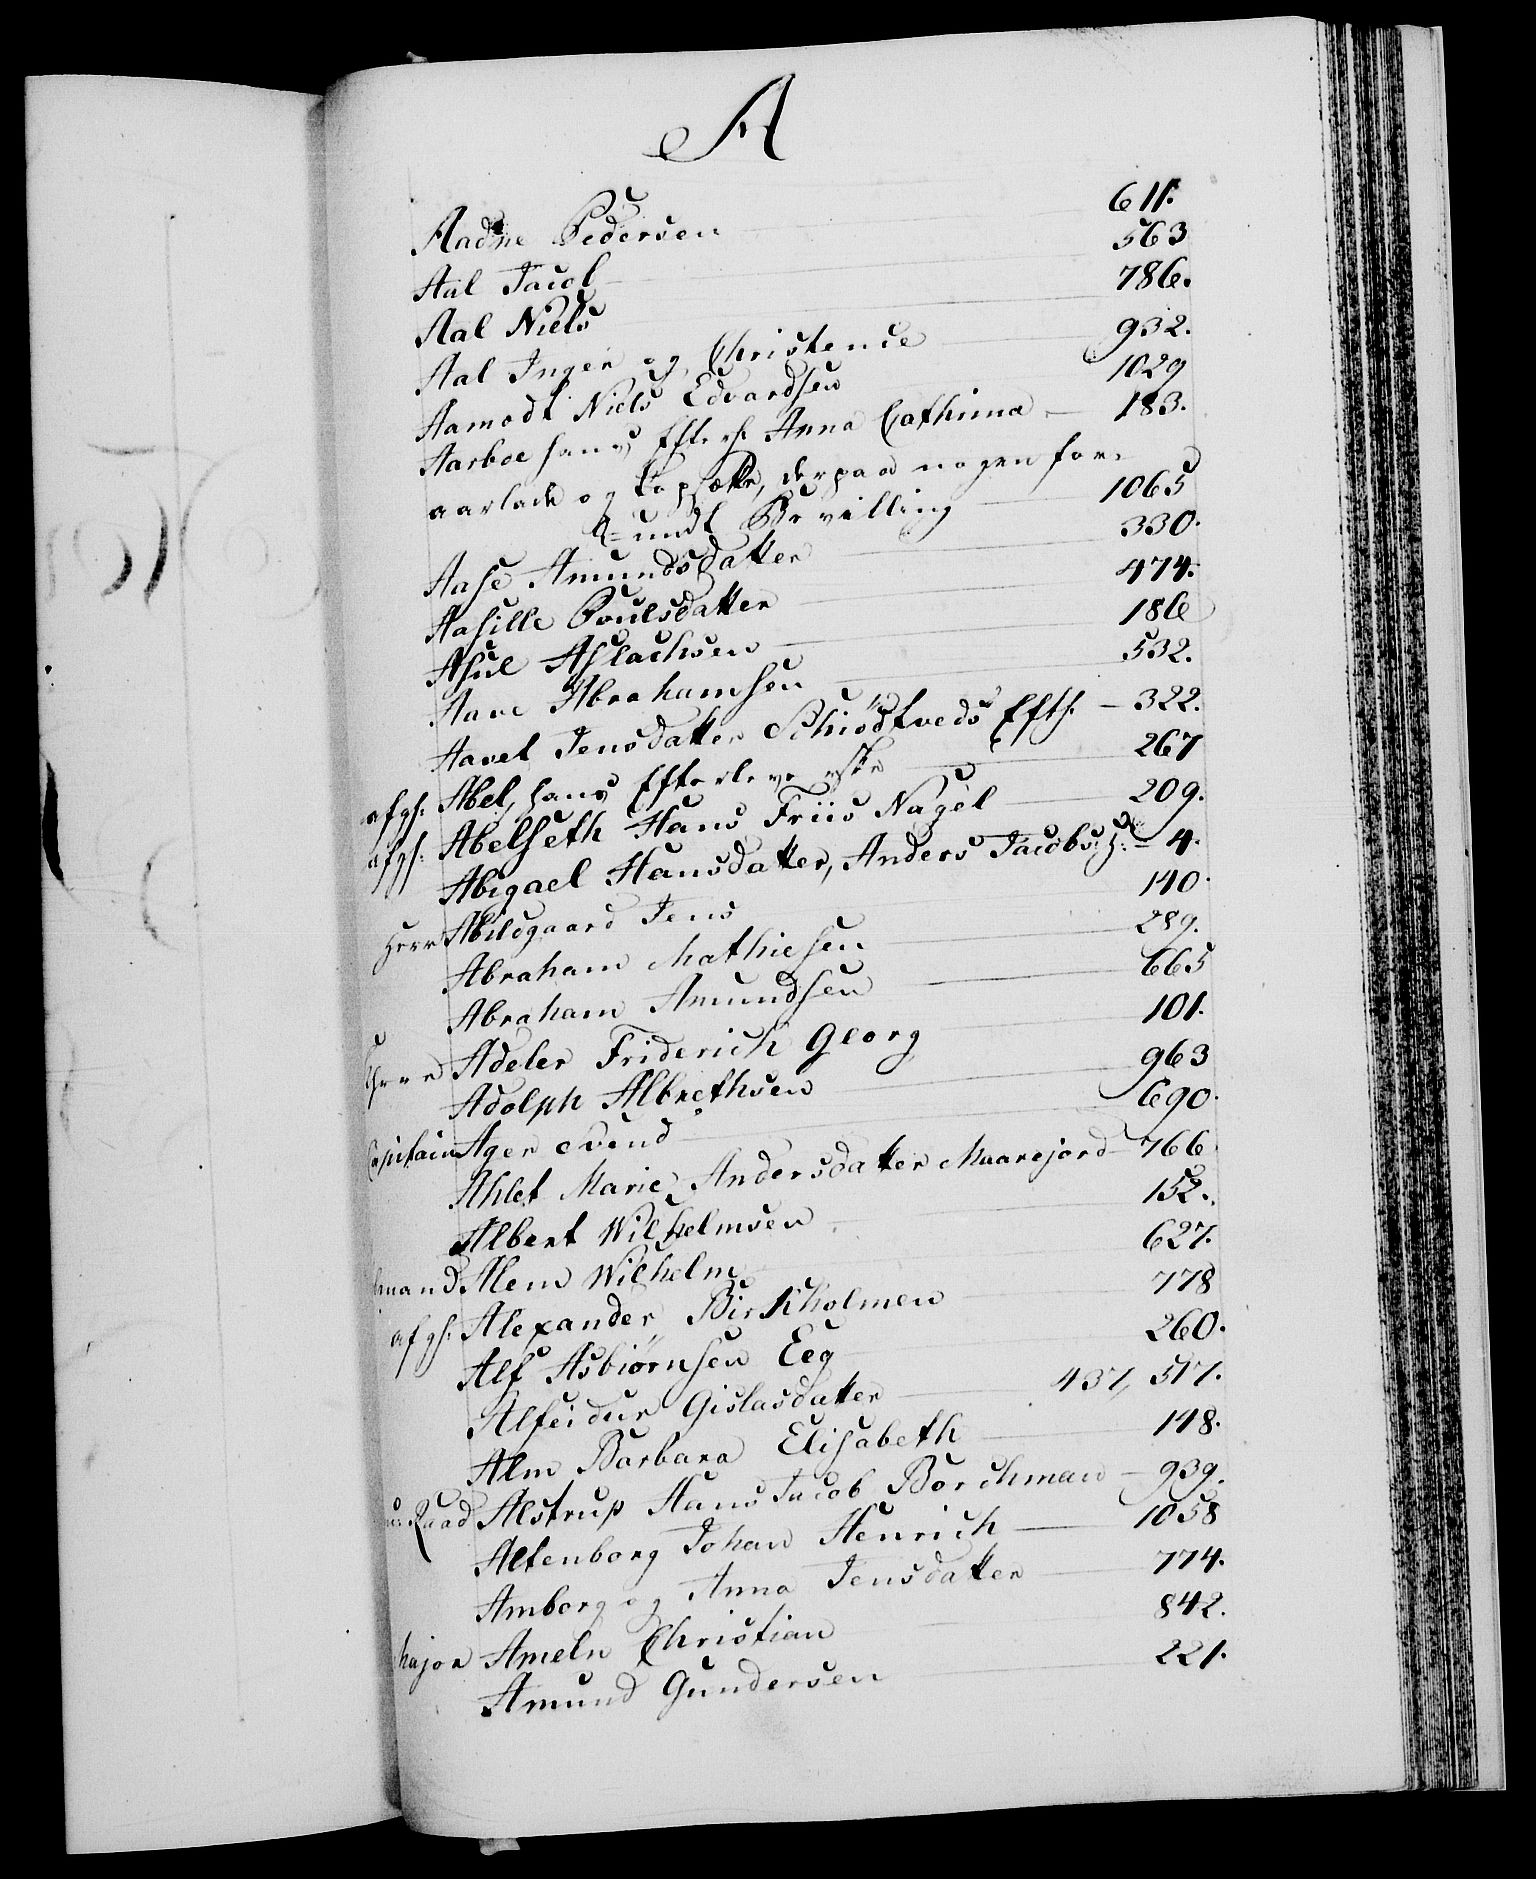 A
Aadne Pedersen 611.
Aal Jacob 563
Aal Niels 786.
Aal Inger og Christence 932.
Aamodt Niels Edvardsen 1029
Aarboe hans Efterl: Anna Cathrina 183.
aarlade og Kopsætte, derpaa nogen for-
undt Bevilling 1065
Aase Amundsdatter 330.
Aasille Poulsdatter 474.
Asul Aslachsen 186
Aave Abrahamsen 532.
Aavet Jensdatter Schiödtveds Efth. 322.
afgl: Abel, hans Efterleverske 267
afgl: Abelseth Hans Friis Nagel 209.
Abigael Hansdatter, Anders Jacobs: 4.
Herr Abildgaard Jens 140.
Abraham Mathiesen 289.
Abraham Amundsen 665
Adeler Friderich Georg 101.
Adolph Albrethsen 963
Capitain Ager Svend 690.
Ahlet Marie Andersdatter Maarejord 766
Albert Wilhelmsen 152.
mand Alem Wilhelm 627.
afgl: Alexander Birkholmen 778
Alf Asbiörnsen Eeg 260.
Alfeidur Gislasdatter 437, 517.
Alm Barbara Elisabeth 148.
Raad Alstrup Hans Jacob Borchman 939.
Altenborg Johan Henrich 1058
Amberg og Anna Jensdatter 774.
Major Ameln Christian 842.
Amund Gundersen 221.